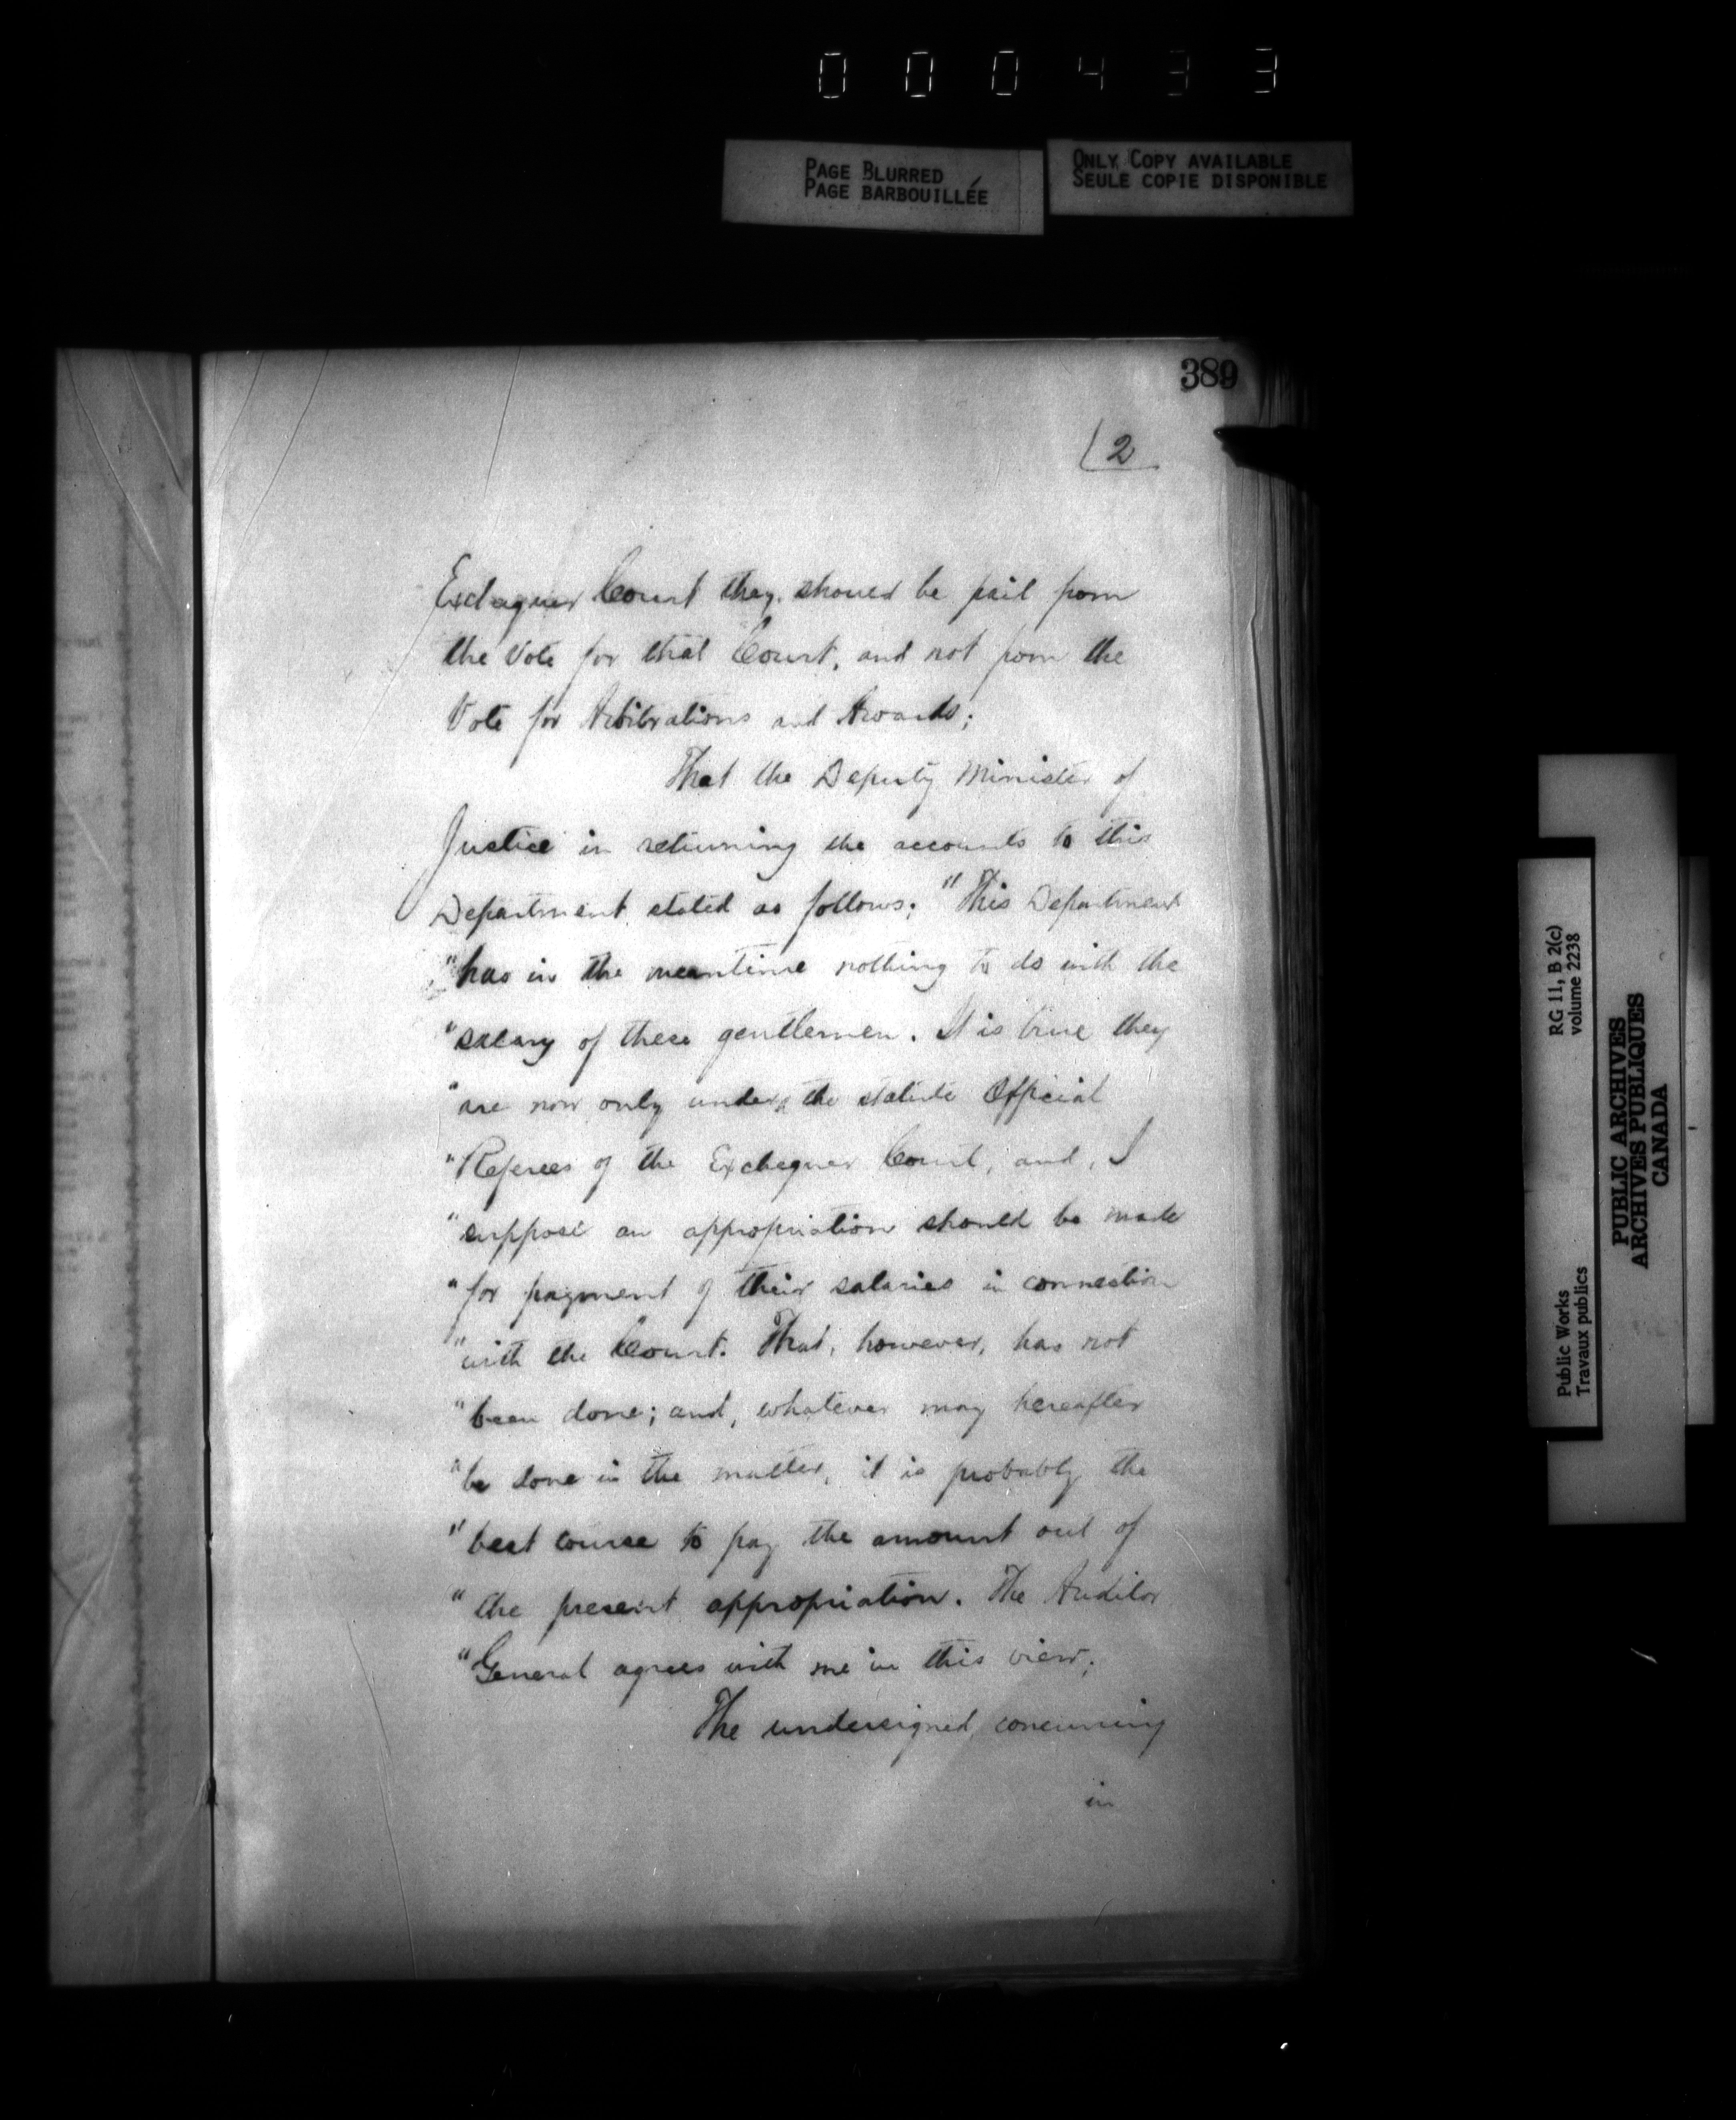 000433
PAGE BLURRED
PAGE BARBOUILLÉE
ONLY COPY AVAILABLE
SEULE COPIE DISPONIBLE
389
2
Exchequer Court they should be paid from
the Vote for that Court, and not from the
Vote for Arbitrations and Awards;
That the Deputy Minister of
Justice in returning the accounts to this
Department stated as follows; "This Department
"has in the meantime nothing to do with the
"salary of these gentlemen. It is true they
"are now only under the statute Official
"Referees of the Exchequer Court, and, I
"suppose an appropriation should be made
"for payment of their salaries in connection
"with the Court. That, however, has not
"been done; and, whatever may hereafter
"be done in the matter, it is probably the
"best course to pay the amount out of
"the present appropriation. The Auditor
"General agrees with me in this view;
The undersigned, concurring
in
RG 11, B 2(c)
volume 2238
Public Works
Travaux publics
PUBLIC ARCHIVES
ARCHIVES PUBLIQUES
CANADA